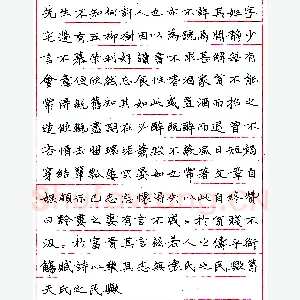 先生不知何許人也亦不詳其姓字
宅邊有五柳樹因以為號焉閑靜少
言不慕榮利好讀書不求甚解每有
會意便欣然忘食性嗜酒家貧不能
常得親舊知其如此或置酒而招之
造飲輒盡期在必醉既醉而退曾不
吝情去留環堵蕭然不蔽風日短褐
穿結簞瓢屢空晏如也常著文章自
娛頗示己志忘懷得失以此自終贊
曰黔婁之妻有言不戚々於貧賤不
汲々於富貴其言茲若人之儔乎銜
觴賦詩以樂其志無懷氏之民歟葛
天氏之民歟